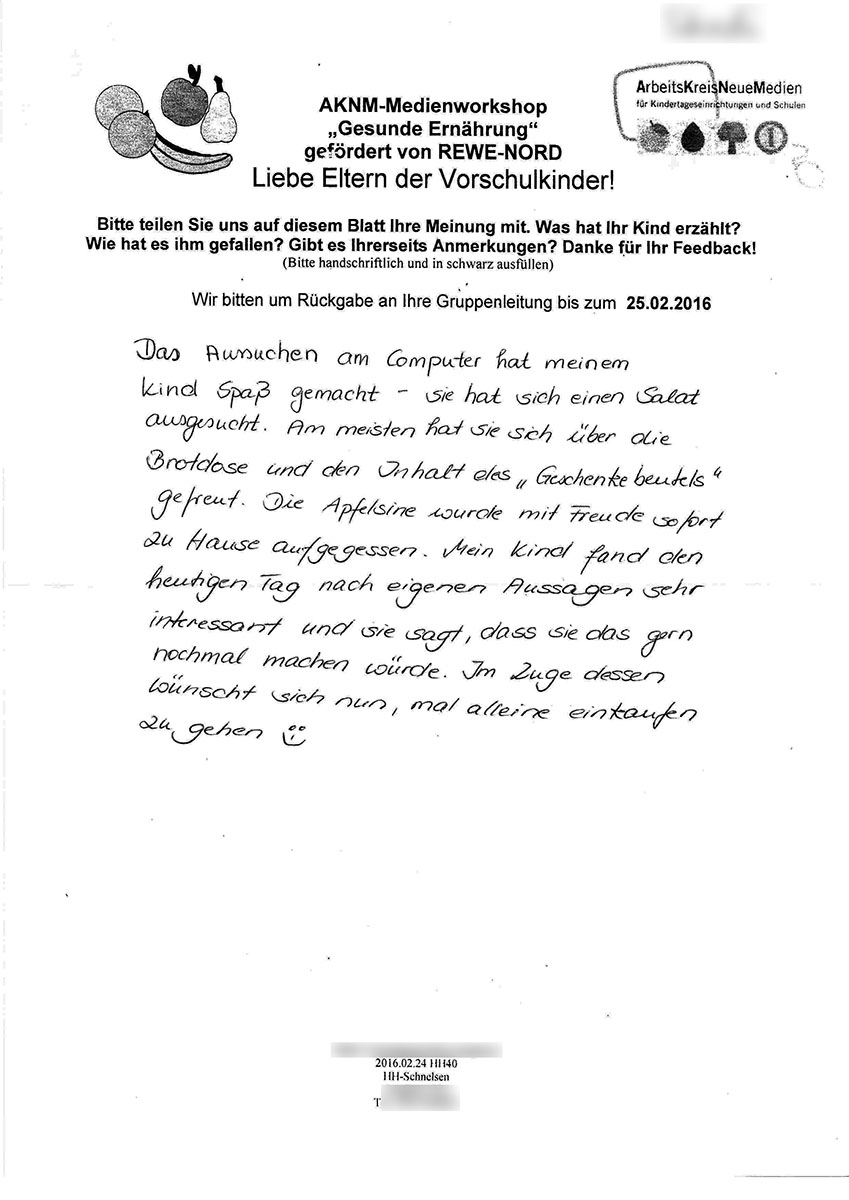 ArbeitsKreisNeueMedien
für Kindertageseinrichtungen und Schulen
AKNM-Medienworkshop
„Gesunde Ernährung“
gefördert von REWE-NORD
Liebe Eltern der Vorschulkinder!
Bitte teilen Sie uns auf diesem Blatt Ihre Meinung mit. Was hat Ihr Kind erzählt?
Wie hat es ihm gefallen? Gibt es Ihrerseits Anmerkungen? Danke für Ihr Feedback!
(Bitte handschriftlich und in schwarz ausfüllen)
Wir bitten um Rückgabe an Ihre Gruppenleitung bis zum 25.02.2016
Das Aussuchen am Computer hat meinem
Kind Spaß gemacht - sie hat sich einen Salat
ausgesucht. Am meisten hat sie sich über die
Brotdose und den Inhalt des „Geschenkebeutels“
gefreut. Die Apfelsine wurde mit Freude sofort
zu Hause aufgegessen. Mein Kind fand den
heutigen Tag nach eigenen Aussagen sehr
interessant und sie sagt, dass sie das gern
nochmal machen würde. Im Zuge dessen
wünscht sich nun, mal alleine einkaufen
zu gehen ☺
2016.02.24 HH40
HH-Schnelsen
T